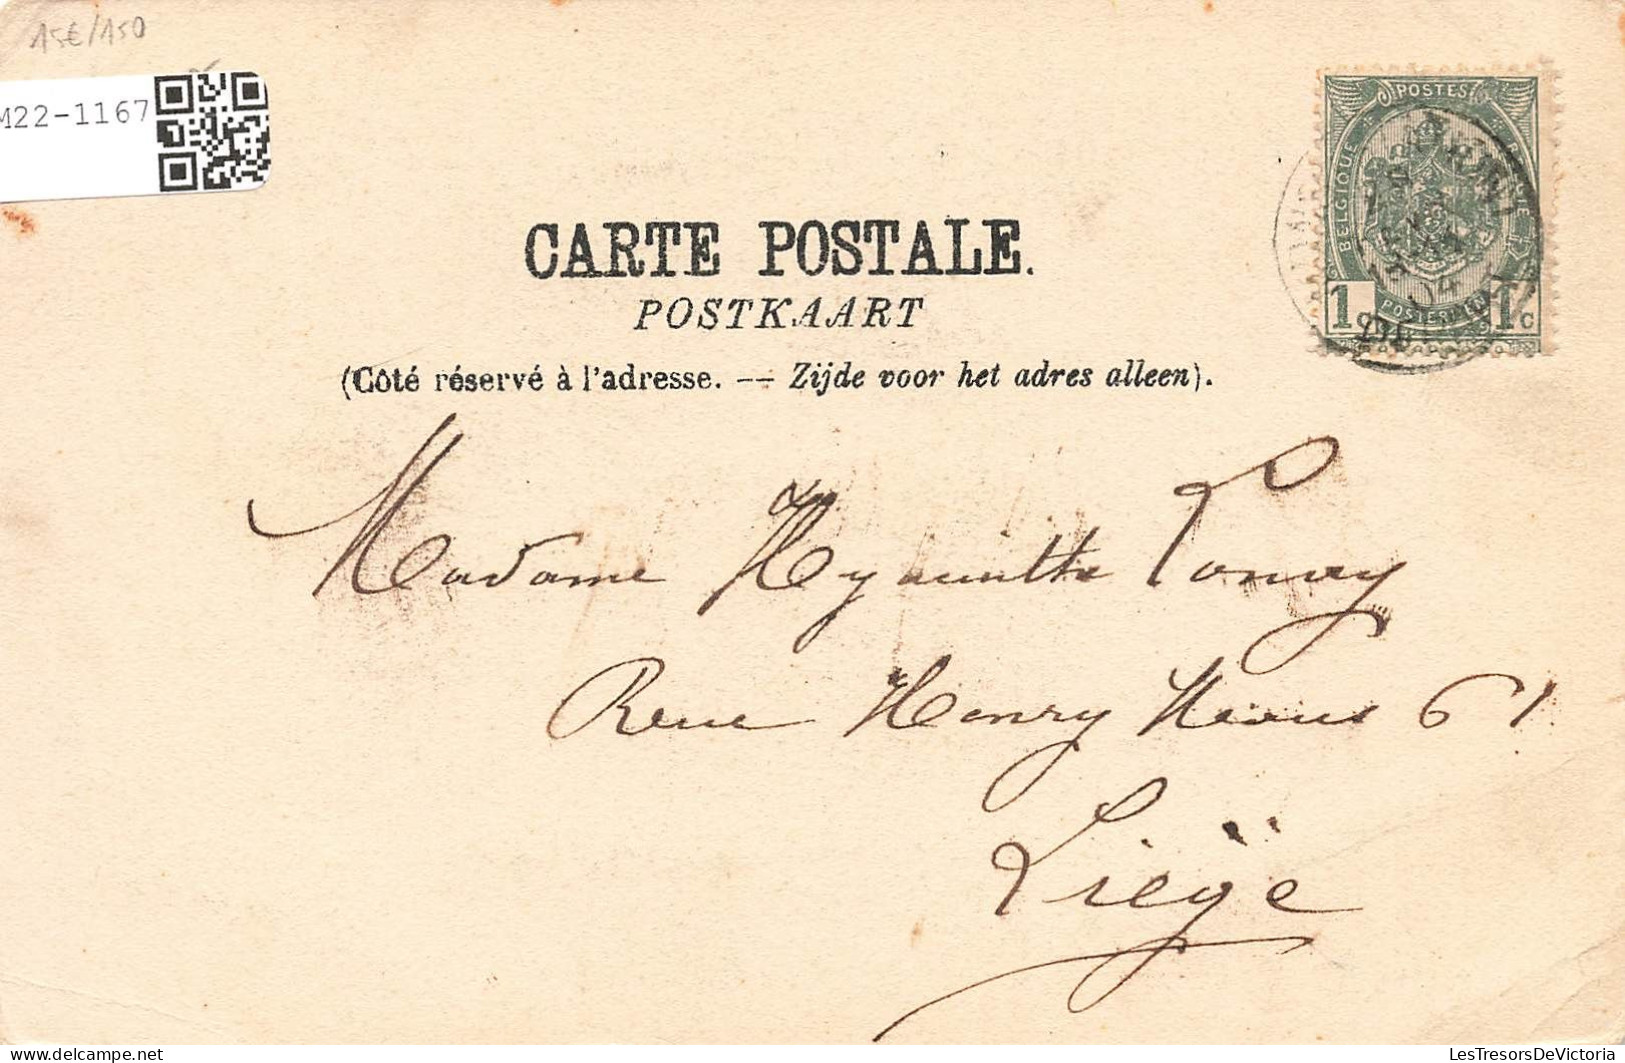 15€/150
M22-1167
POSTES
BELGIQUE
1c
1c
CARTE POSTALE.
POSTKAART
(Côté réservé à l'adresse. -- Zijde voor het adres alleen).
Madame Hyacinthe
Rue Henry 61
Liège
delcampe.net
LesTresorsDeVictoria